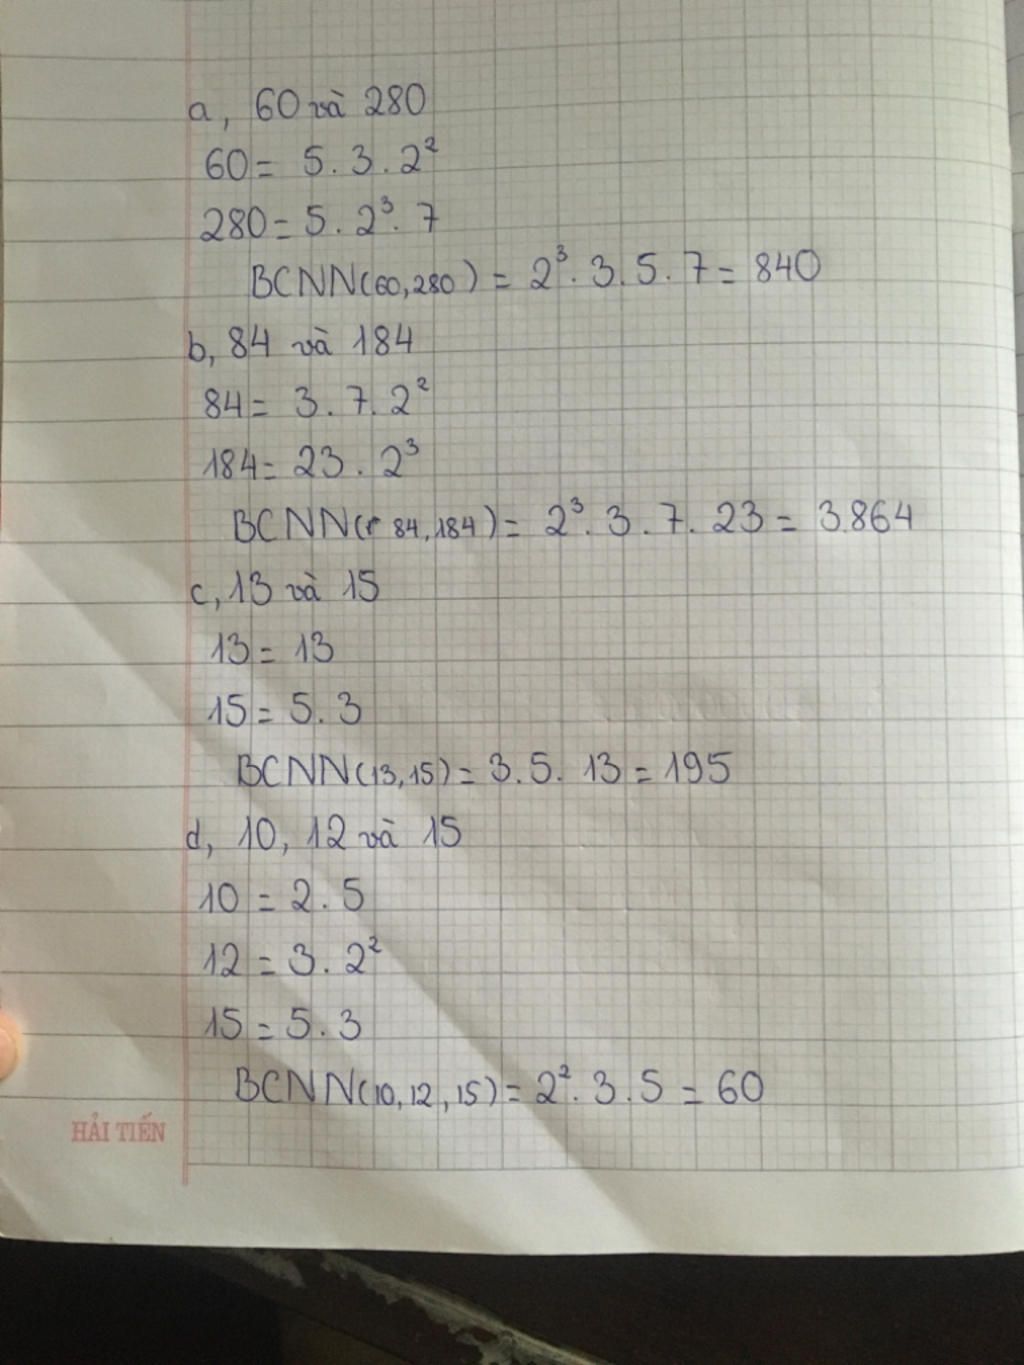 a, 60 và 280
60 = 5 . 3 . 2²
280 = 5 . 2³ . 7
BCNN(60,280) = 2³ . 3 . 5 . 7 = 840
b, 84 và 184
84 = 3 . 7 . 2²
184 = 23 . 2³
BCNN(84,184) = 2³ . 3 . 7 . 23 = 3.864
c, 13 và 15
13 = 13
15 = 5 . 3
BCNN(13,15) = 3 . 5 . 13 = 195
d, 10, 12 và 15
10 = 2 . 5
12 = 3 . 2²
15 = 5 . 3
BCNN(10,12,15) = 2² . 3 . 5 = 60
HẢI TIẾN